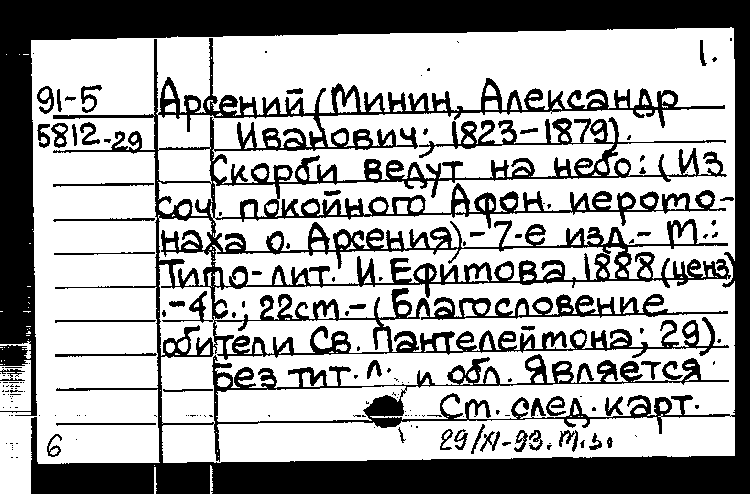 1.
91-5 Арсений (Минин, Александр
5812-29 Иванович; 1823-1879).
Скорби ведут на небо: (Из
соч. покойного Афон. иеромо-
наха о. Арсения).-7-е изд.- М.:
Типо-лит. И. Ефимова, 1888 (ценз)
.-4 с.; 22см.-(Благословение
обители Св. Пантелеймона; 29).
Без тит. л. и обл. Является
См. след. карт.
6 29/XI-93. м.з.